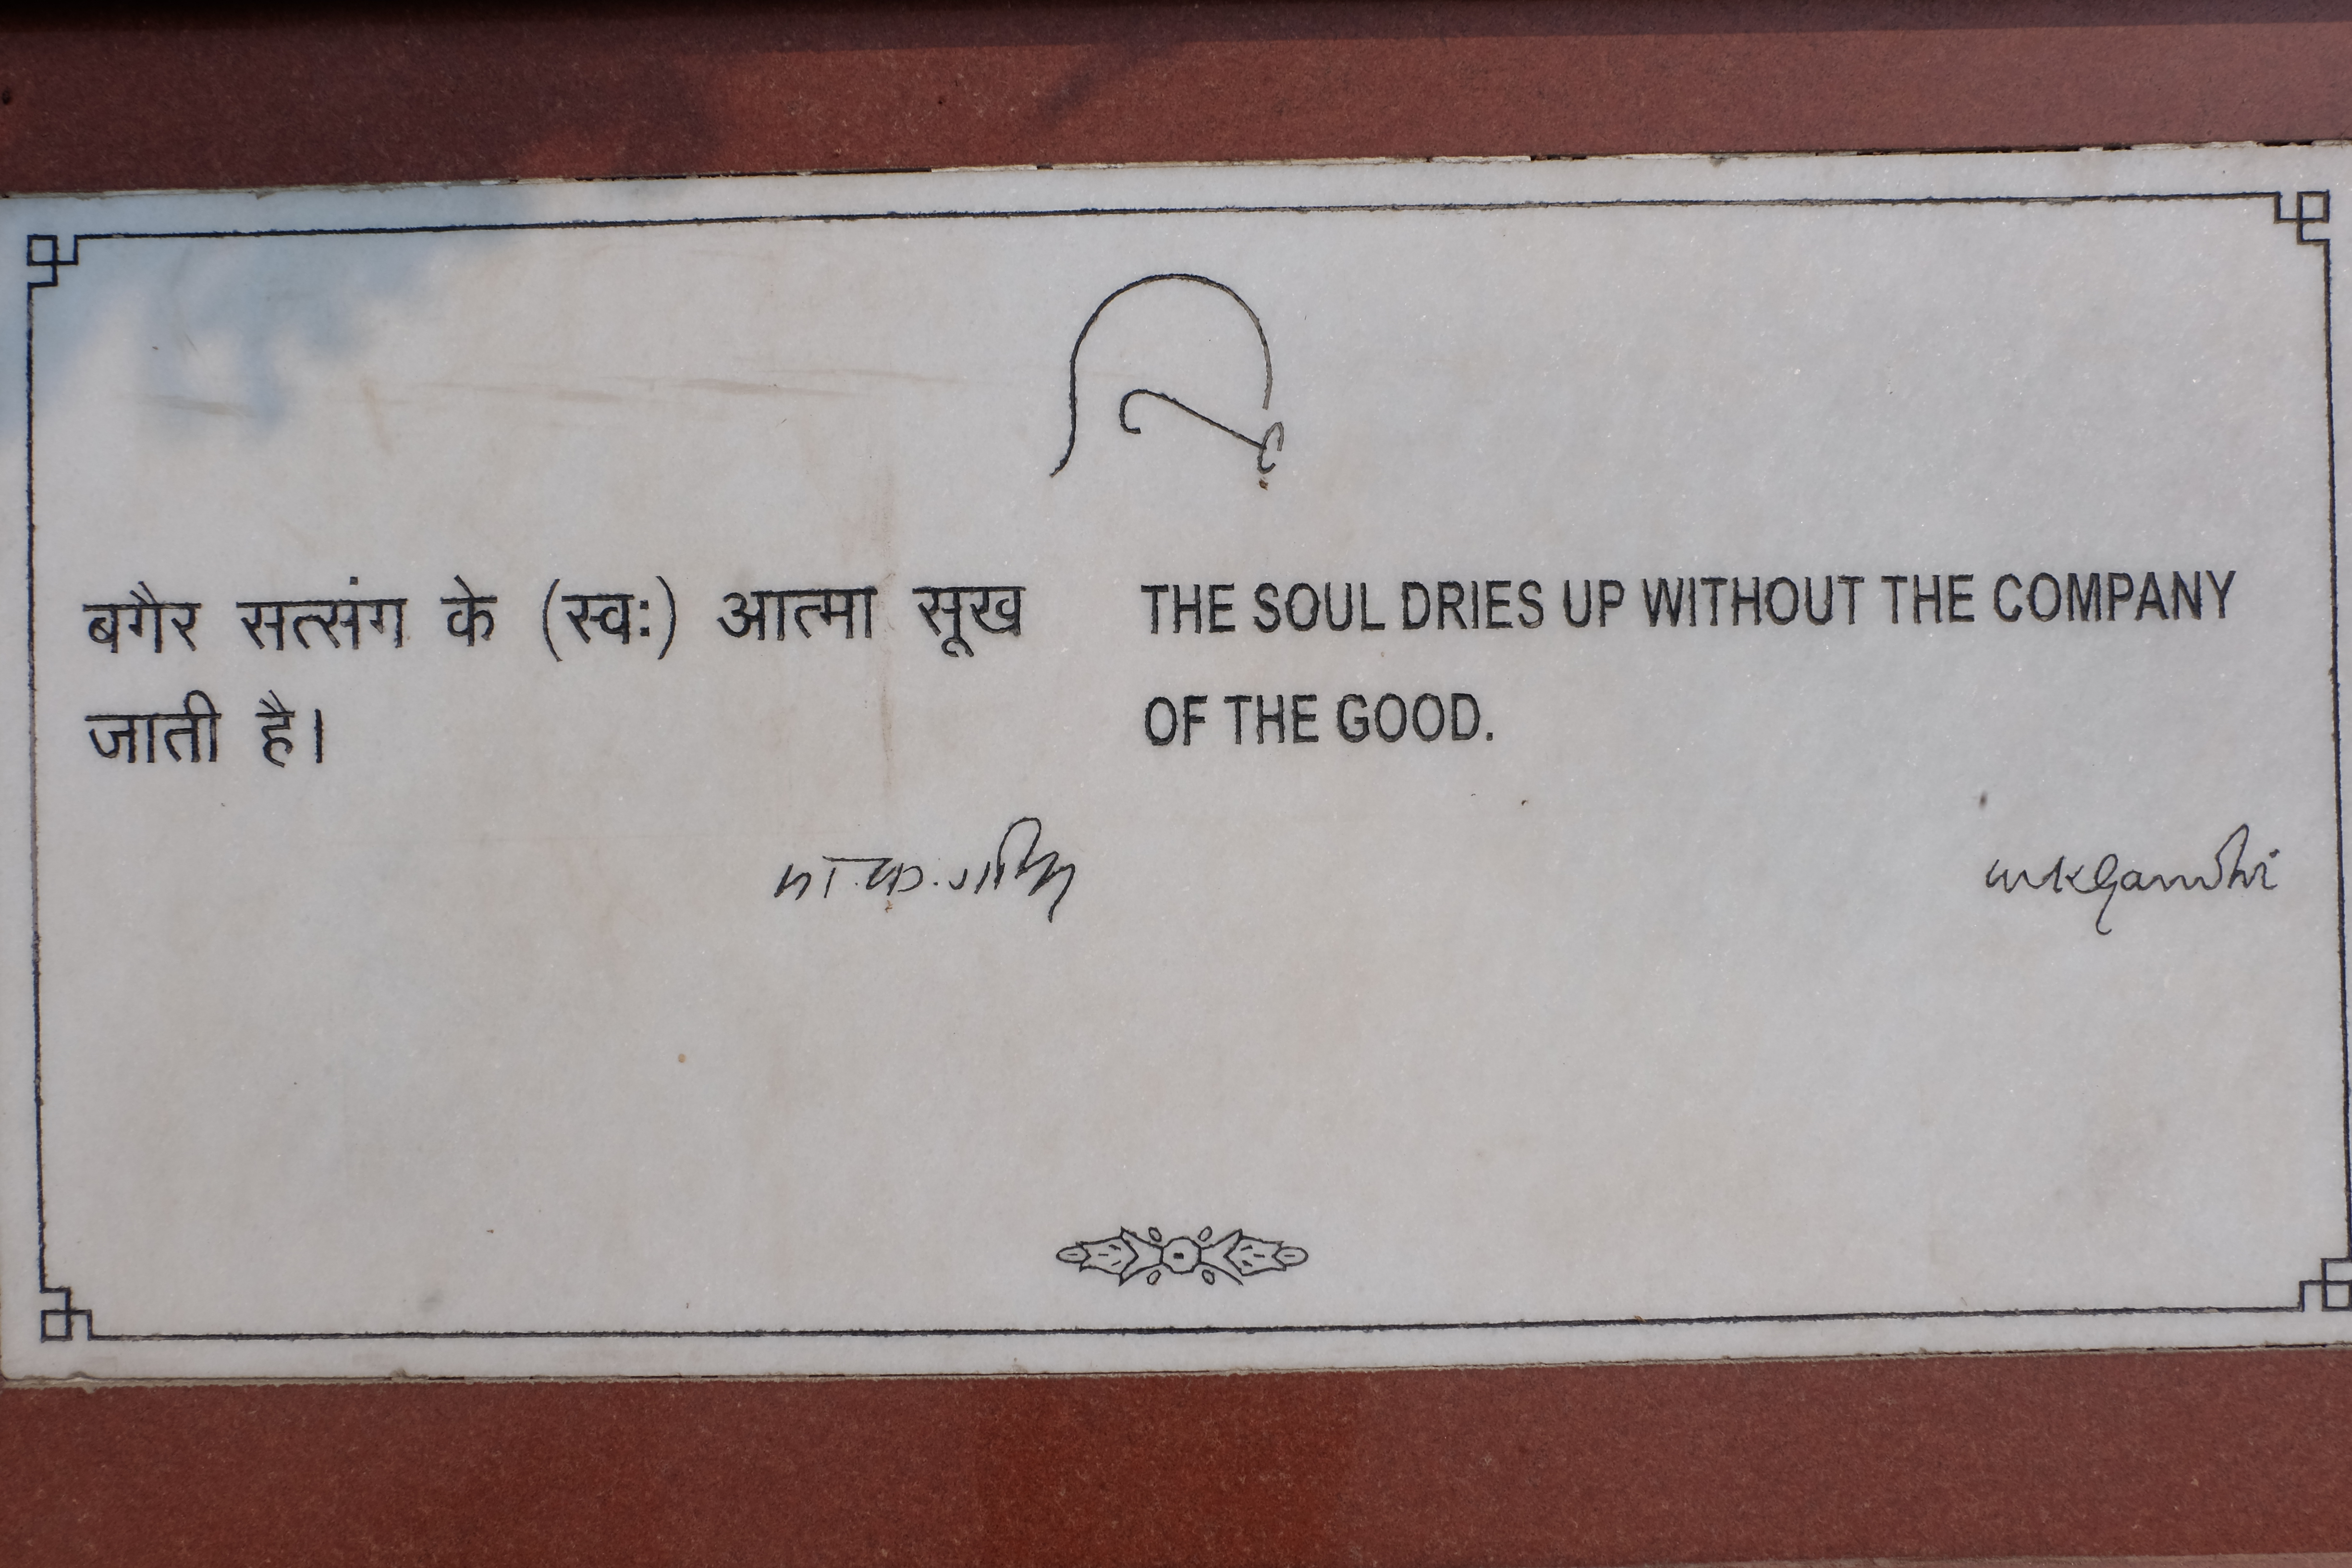 बगैर सत्संग के (स्वः) आत्मा सूख
जाती है।
मो.क.गांधी
THE SOUL DRIES UP WITHOUT THE COMPANY
OF THE GOOD.
mkgandhi